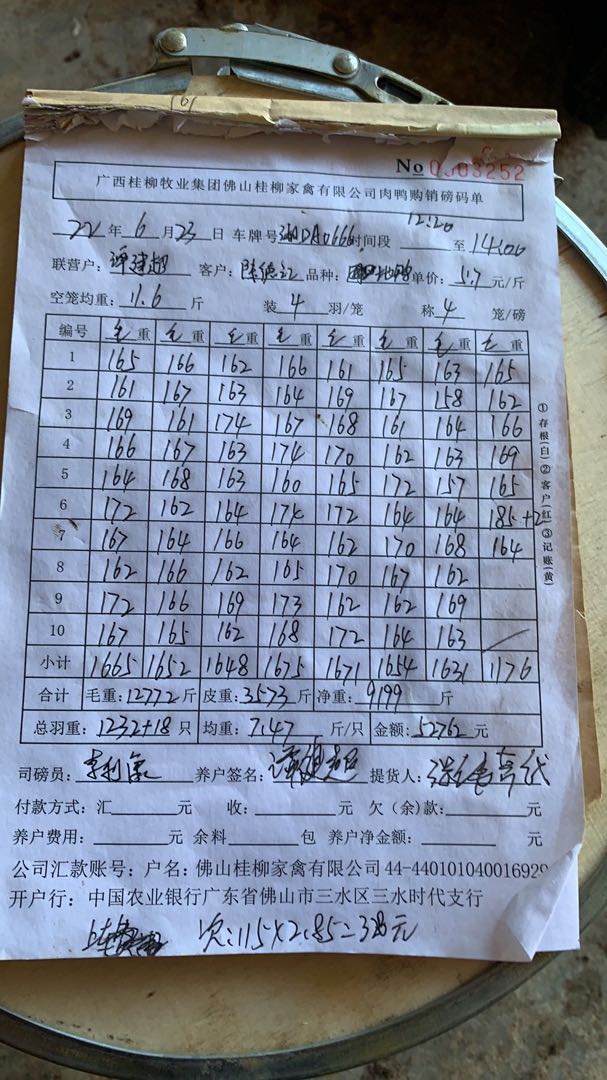 161
No 0003252
广西桂柳牧业集团佛山桂柳家禽有限公司肉鸭购销磅码单
22 年 6 月 23 日 车牌号 DA0666 时间段 12:20 至 14:00
联营户: 谭建超 客户: 品种: 单价: 5.7 元/斤
空笼均重: 11.6 斤 装 4 羽/笼 称 4 笼/磅
编号 毛重 毛重 毛重 毛重 毛重 毛重 毛重 毛重
1 165 166 162 166 161 165 163 165
2 161 167 163 164 169 167 158 162
3 169 161 174 167 168 161 164 166
4 166 167 163 174 170 162 163 169
5 164 168 163 160 165 172 157 165
6 172 162 164 174 172 164 164 185+2
7 167 164 166 164 162 170 168 164
8 162 166 162 165 170 167 162
9 172 166 169 173 162 162 169
10 167 165 162 168 172 164 163
小计 1665 1652 1648 1675 1671 1654 1631 1176
合计 毛重: 12772 斤 皮重: 3573 斤 净重: 9199 斤
总羽重: 1232+18 只 均重: 7.47 斤/只 金额: 52762 元
司磅员: 养户签名: 谭建超 提货人:
付款方式: 汇 元 收: 元 欠(余)款: 元
养户费用: 元 余料 包 养户净金额: 元
公司汇款账号: 户名: 佛山桂柳家禽有限公司 44-440101040016929
开户行: 中国农业银行广东省佛山市三水区三水时代支行
次:115×2.85=328元
①存根(白)②客户(红)③记账(黄)